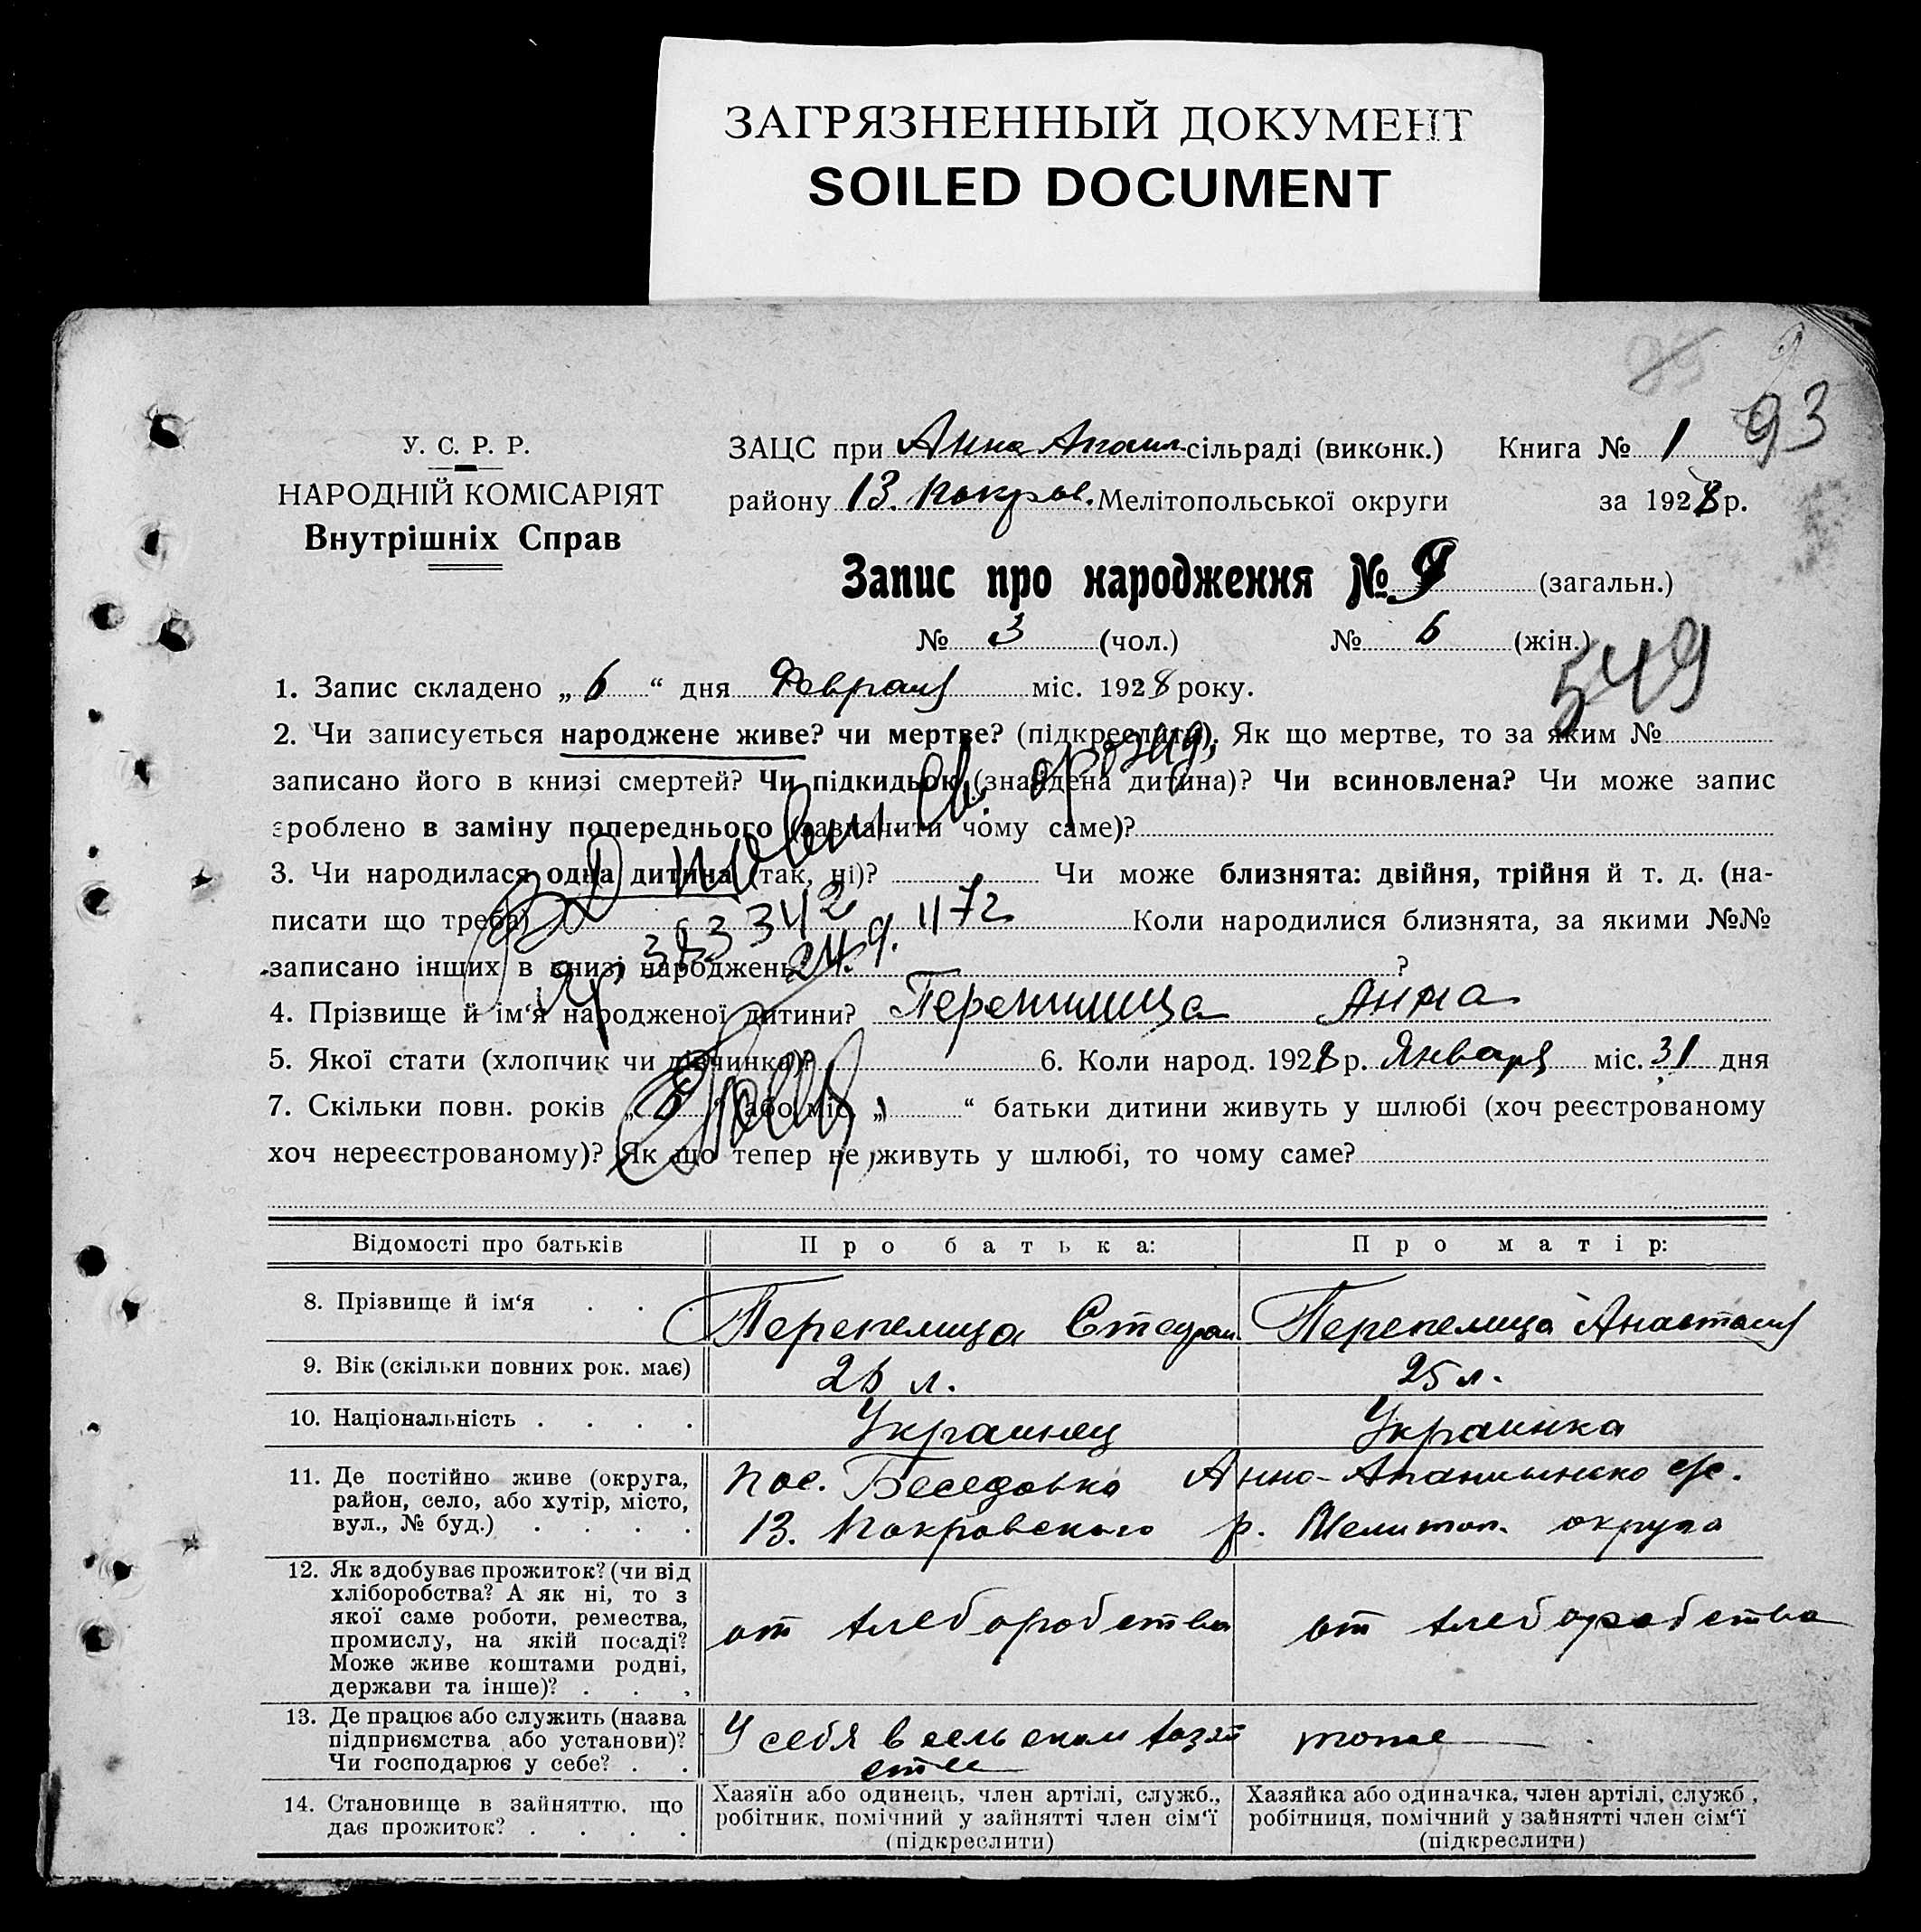 ЗАГРЯЗНЕННЫЙ ДОКУМЕНТ
SOILED DOCUMENT
93
У. С. Р. Р.
НАРОДНІЙ КОМІСАРІЯТ
Внутрішніх Справ
ЗАЦС при Анна Апаил сільраді (виконк.) Книга № 1
району 13. Покров. Мелітопольської округи за 1928 р.
Запис про народження № 9 (загальн.)
№ 3 (чол.) № 6 (жін.)
549
1. Запис складено „ 6 “ дня Февраля міс. 1928 року.
2. Чи записується народжене живе? чи мертве? (підкреслити). Як що мертве, то за яким №
записано його в книзі смертей? Чи підкидьок (знайдена дитина)? Чи всиновлена? Чи може запис
зроблено в заміну попереднього (зазначити чому саме)?
3. Чи народилася одна дитина (так, ні)? Чи може близнята: двійня, трійня й т. д. (на-
писати що треба) Коли народилися близнята, за якими №№
записано інших в книзі народжень ?
383342
24.9. 1172
4. Прізвище й ім‘я народженої дитини? Перепилица Анна
5. Якої стати (хлопчик чи дівчинка)? 6. Коли народ. 1928 р. Января міс. 31 дня
7. Скільки повн. років „ 5 “ (або міс. „ “ батьки дитини живуть у шлюбі (хоч реєстрованому
хоч нереєстрованому)? Як що тепер не живуть у шлюбі, то чому саме?
Відомості про батьків Про батька: Про матір:
8. Прізвище й ім‘я . . . Перепелица Стефан Перепелица Анастасия
9. Вік (скільки повних рок. має) 26 л. 25 л.
10. Національність . . . . Украинец Украинка
11. Де постійно живе (округа, район, село, або хутір, місто, вул., № буд.) . . . . пос. Беседовка Анно-Апанлинско с/с.
13. Покровского р. Мелитоп. округа
12. Як здобуває прожиток? (чи від
хліборобства? А як ні, то з
якої саме роботи, ремества,
промислу, на якій посаді?
Може живе коштами родні,
держави та інше)? . . .
от хлеборобства от хлеборобства
13. Де працює або служить (назва
підприємства або установи)?
Чи господарює у себе? . .
У себя в сельском хозяй
стве
тоже
14. Становище в зайняттю, що
дає прожиток? . . . .
Хазяїн або одинець, член артілі, служб.,
робітник, помічний у зайнятті член сім‘ї
(підкреслити)
Хазяйка або одиначка, член артілі, служб.,
робітниця, помічний у зайнятті член сім‘ї
(підкреслити)